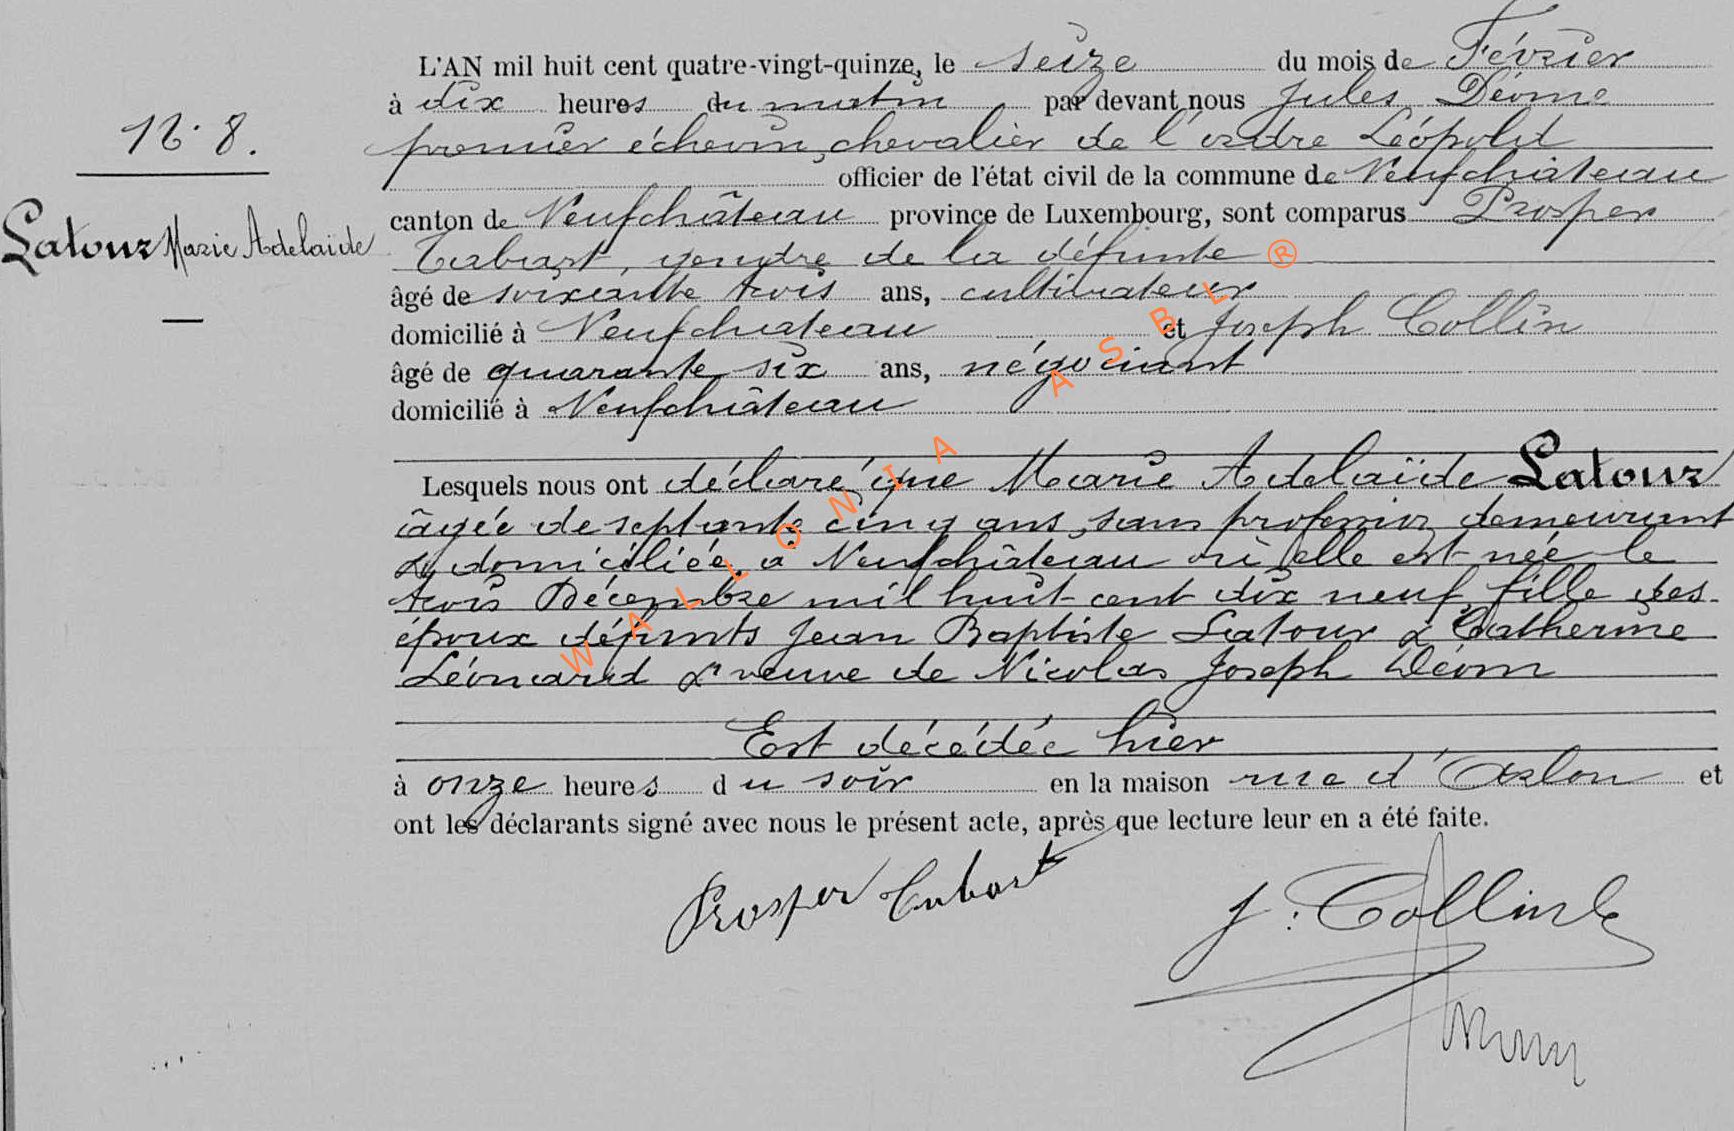 N° 8.
Latour Marie Adelaide
L'AN mil huit cent quatre-vingt-quinze, le seize du mois de Février
à dix heures du matin par devant nous Jules Déome
premier échevin, chevalier de l'ordre Léopold
officier de l'état civil de la commune de Neufchâteau
canton de Neufchâteau province de Luxembourg, sont comparus Prosper
Cabart, gendre de la défunte
âgé de soixante trois ans, cultivateur
domicilié à Neufchateau et Joseph Collin
âgé de quarante six ans, négociant
domicilié à Neufchâteau
Lesquels nous ont déclaré que Marie Adelaïde Latour
âgée de septante cinq ans, sans profession, demeurant
& domiciliée à Neufchâteau où elle est née le
trois Décembre mil huit cent dix neuf, fille des
époux défunts Jean Baptiste Latour & Catherine
Léonard & veuve de Nicolas Joseph Déom
Est décédée hier
à onze heures du soir en la maison rue d'Arlon et
ont les déclarants signé avec nous le présent acte, après que lecture leur en a été faite.
Prosper Cabart
J. Collin
WALLONIA ASBL ®